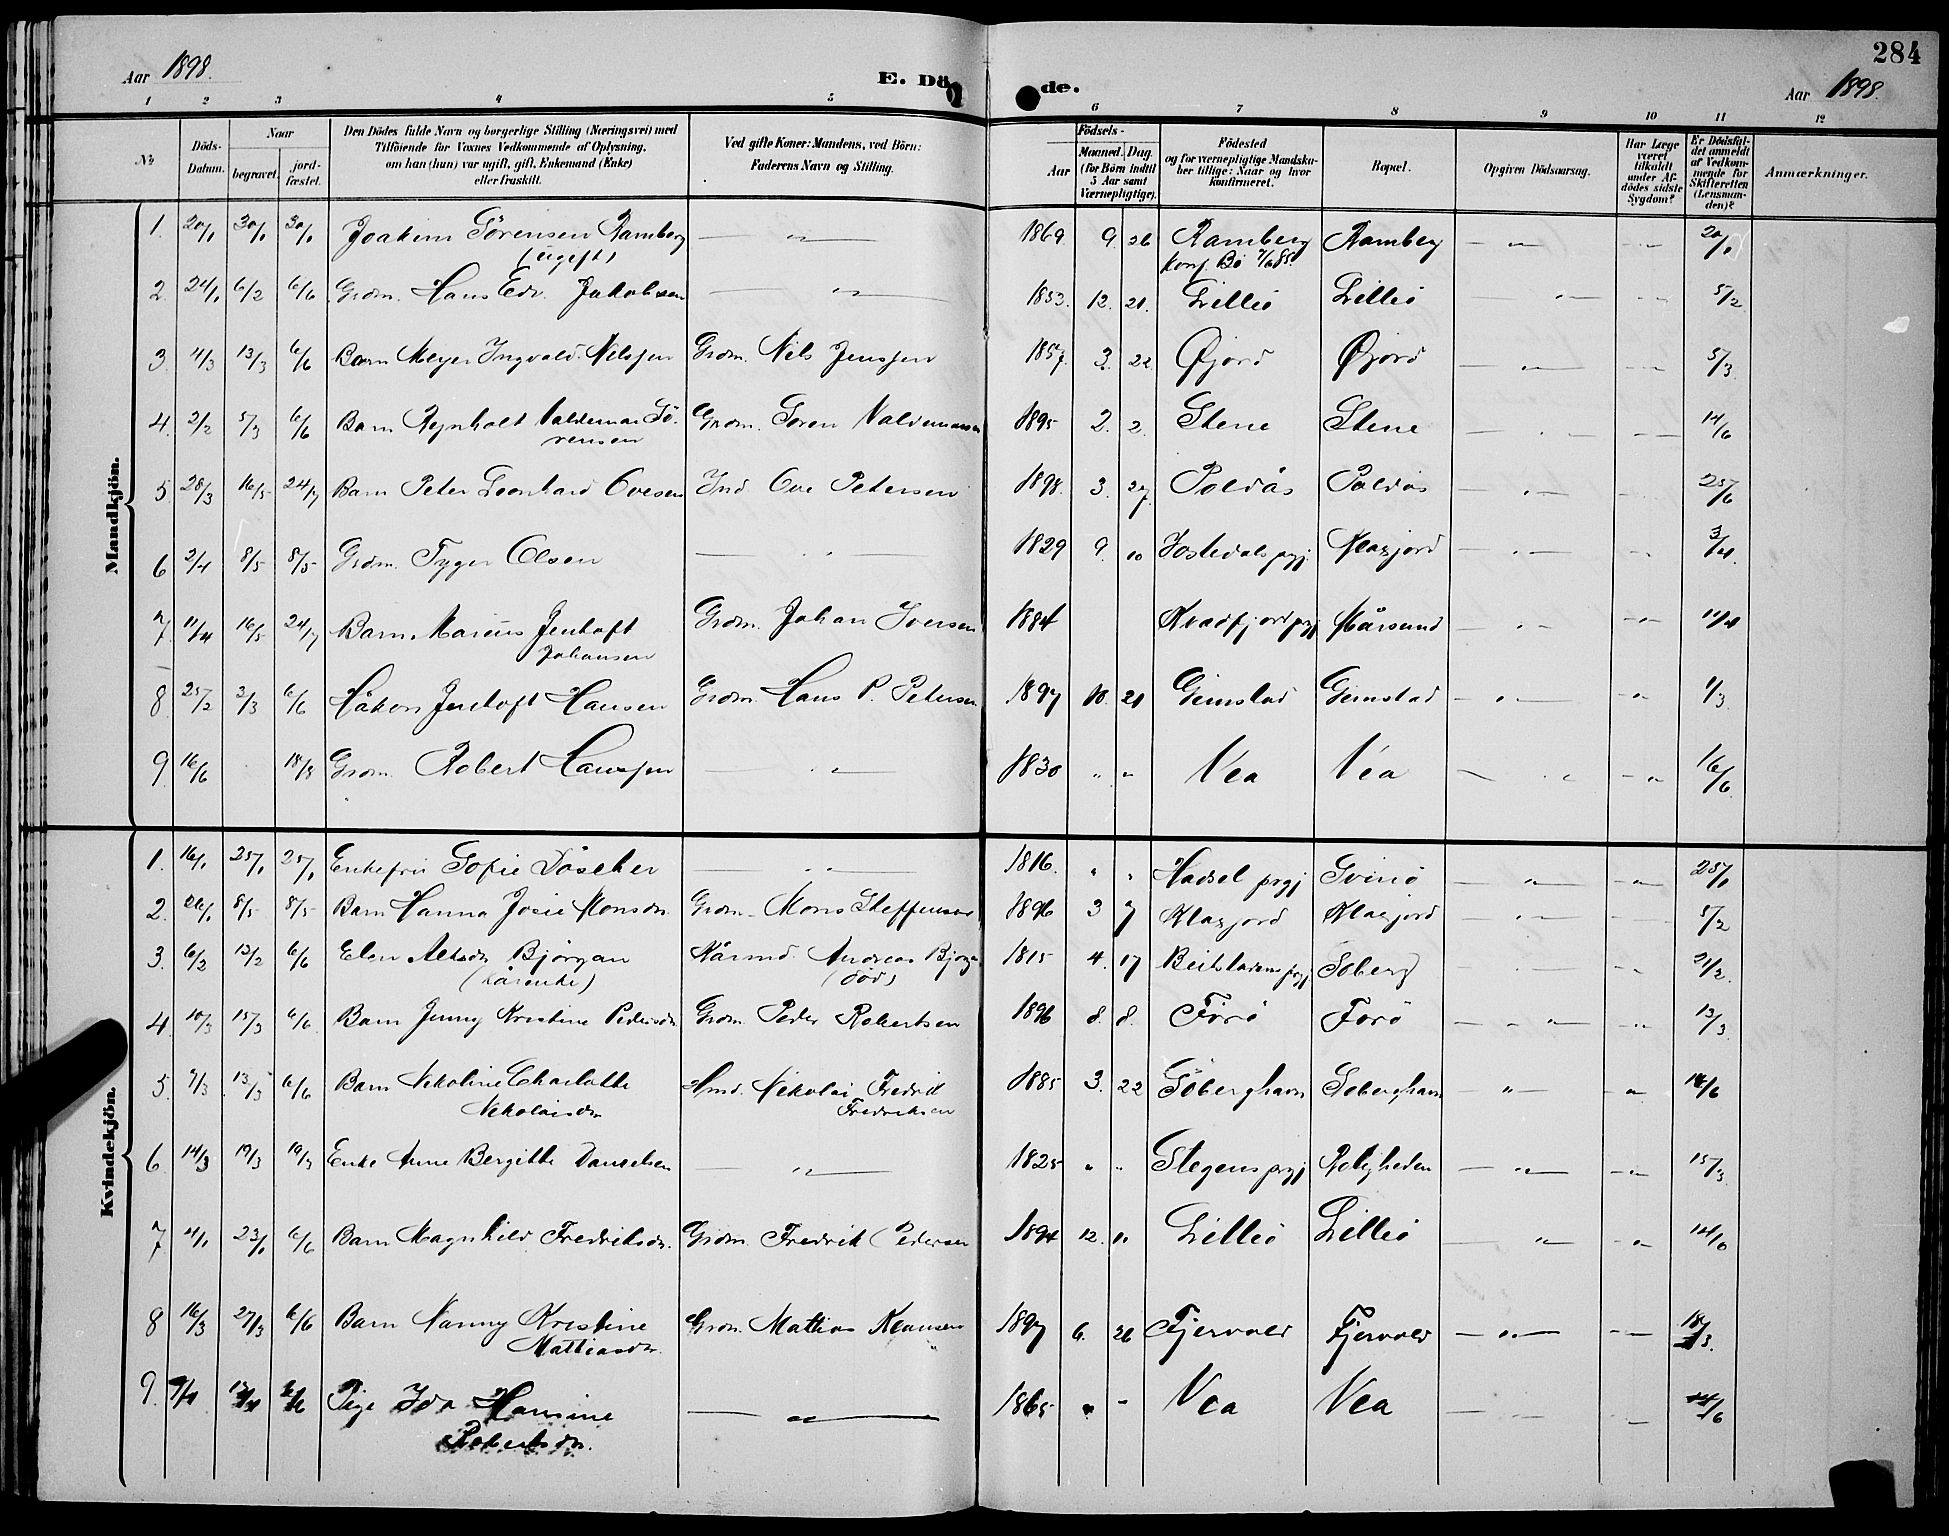 284
Aar 1898.
E. Döde.
Aar 1898.
1 2 3 4 5 6 7 8 9 10 11 12
No
Döds-Datum.
Naar
begravet.
jord-fæstet.
Den Dödes fulde Navn og borgerlige Stilling (Næringsvei) med
Tilföiende for Voxnes Vedkommende af Oplysning,
om han (hun) var ugift, gift, Enkemand (Enke)
eller fraskilt.
Ved gifte Koner: Mandens, ved Börn:
Faderens Navn og Stilling.
Födsels-
Aar
Maaned. Dag.
(for Börn indtil
5 Aar samt
Værnepligtige).
Födested
og for værnepligtige Mandska-
ber tillige: Naar og hvor
konfirmeret.
Bopæl.
Opgiven Dödsaarsag.
Har Læge
været
tilkaldt
under Af-
dödes sidste
Sygdom?
Er Dödsfal-
det anmeldt
af Vedkom-
mende for
Skifteretten
(Lensman-
den)?
Anmærkninger.
Mandkjön.
1. 20/1 30/1 30/1 Joakim Sörensen Ramberg — " — 1869 9 26 Ramberg Ramberg — " — — " — 20/1
(ugift) konf. Bö 7/6 85.
2. 24/1 6/2 6/6 Grdm. Hans Edv. Jakobsen — " — 1853. 12. 21. Lilleö Lilleö — " — — " — 5/2
3. 4/3 13/3 6/6 Barn Meyer Ingvald Nilssen Grdm. Nils Jenssen 1857. 3. 22. Øjord Øjord — " — — " — 5/3
4. 2/2 5/3 6/6 Barn Reynholt Valdemar Sö- Grdm. Sören Valdemarsen 1895 2. 2. Stene Stene — " — — " — 14/6
rensen
5 28/3 16/5 24/7 Barn Peter Leonhard Ovesen Ind. Ove Petersen 1898. 3. 27. Poldås Poldås — " — — " — 25/6
6 2/4 8/5 8/5 Grdm. Tyger Olsen — " — 1829 9. 10 Jostedals prgj. Klaxjord — " — — " — 3/4
7. 11/4 16/5 24/7 Barn Marius Jentoft Grdm. Johan Iversen 1884 Kvadfjord prgj Kårsund — " — — " — 11/4
Johansen
8 25/2 3/3 6/6 Håkon Jentoft Hansen Grdm. Hans P. Petersen 1897 10. 21 Gimstad Gimstad — " — — " — 1/3
9 16/6 18/8 Grdm. Robert Hanssen — " — 1830 " " Vea Vea — " — — " — 16/6
Kvindekjön.
1. 16/1 25/1 25/1 Enkefru Sofie Döscher — " — 1816. " " Hadsel prgj Svinö — " — — " — 25/1
2. 26/1 8/5 8/5 Barn Hanna Josie Monsdr. Grdm. Mons Steffensen 1896 3 7 Klaxjord Klaxjord — " — — " — 5/2
3. 6/2 13/2 6/6 Elen Aletsdr. Bjørgan Kårmd. Andreas Bjørgan 1815 4. 17 Beitstadens prgj Söberg — " — — " — 21/2.
(kårenke) (död)
4. 10/3 15/3 6/6. Barn Jenny Kristine Pedersdr. Grdm. Peder Robertsen 1896 8. 8. Forö Forö — " — — " — 13/3
5. 9/3 13/3 6/6 Barn Nekoline Charlotte Hmd. Nikolai Fredrik 1885 3. 22 Söberghavn Söberghavn — " — — " — 14/6
Nekolaisdr. Fredriksen
6 14/3 19/3 19/3 Enke Anne Bergitte Danielsen — " — 1825 " " Stegens prgj Roligheden — " — — " — 15/3
7 4/1 23/1 6/6 Barn Magnhild Fredriksdr. Grdm. Fredrik Pedersen 1894 12. 11. Lilleö Lilleö — " — — " — 12/6
8 16/3 27/3 6/6 Barn Nanny Kristine Grdm. Mathias Klausen 1897 6. 26 Fjervold Fjervold — " — — " — 18/3.
Mathiasdr.
9. Pige Ida Hansine — " — 1865 " " Vea Vea — " — — " — 14/6
Robertsdr.